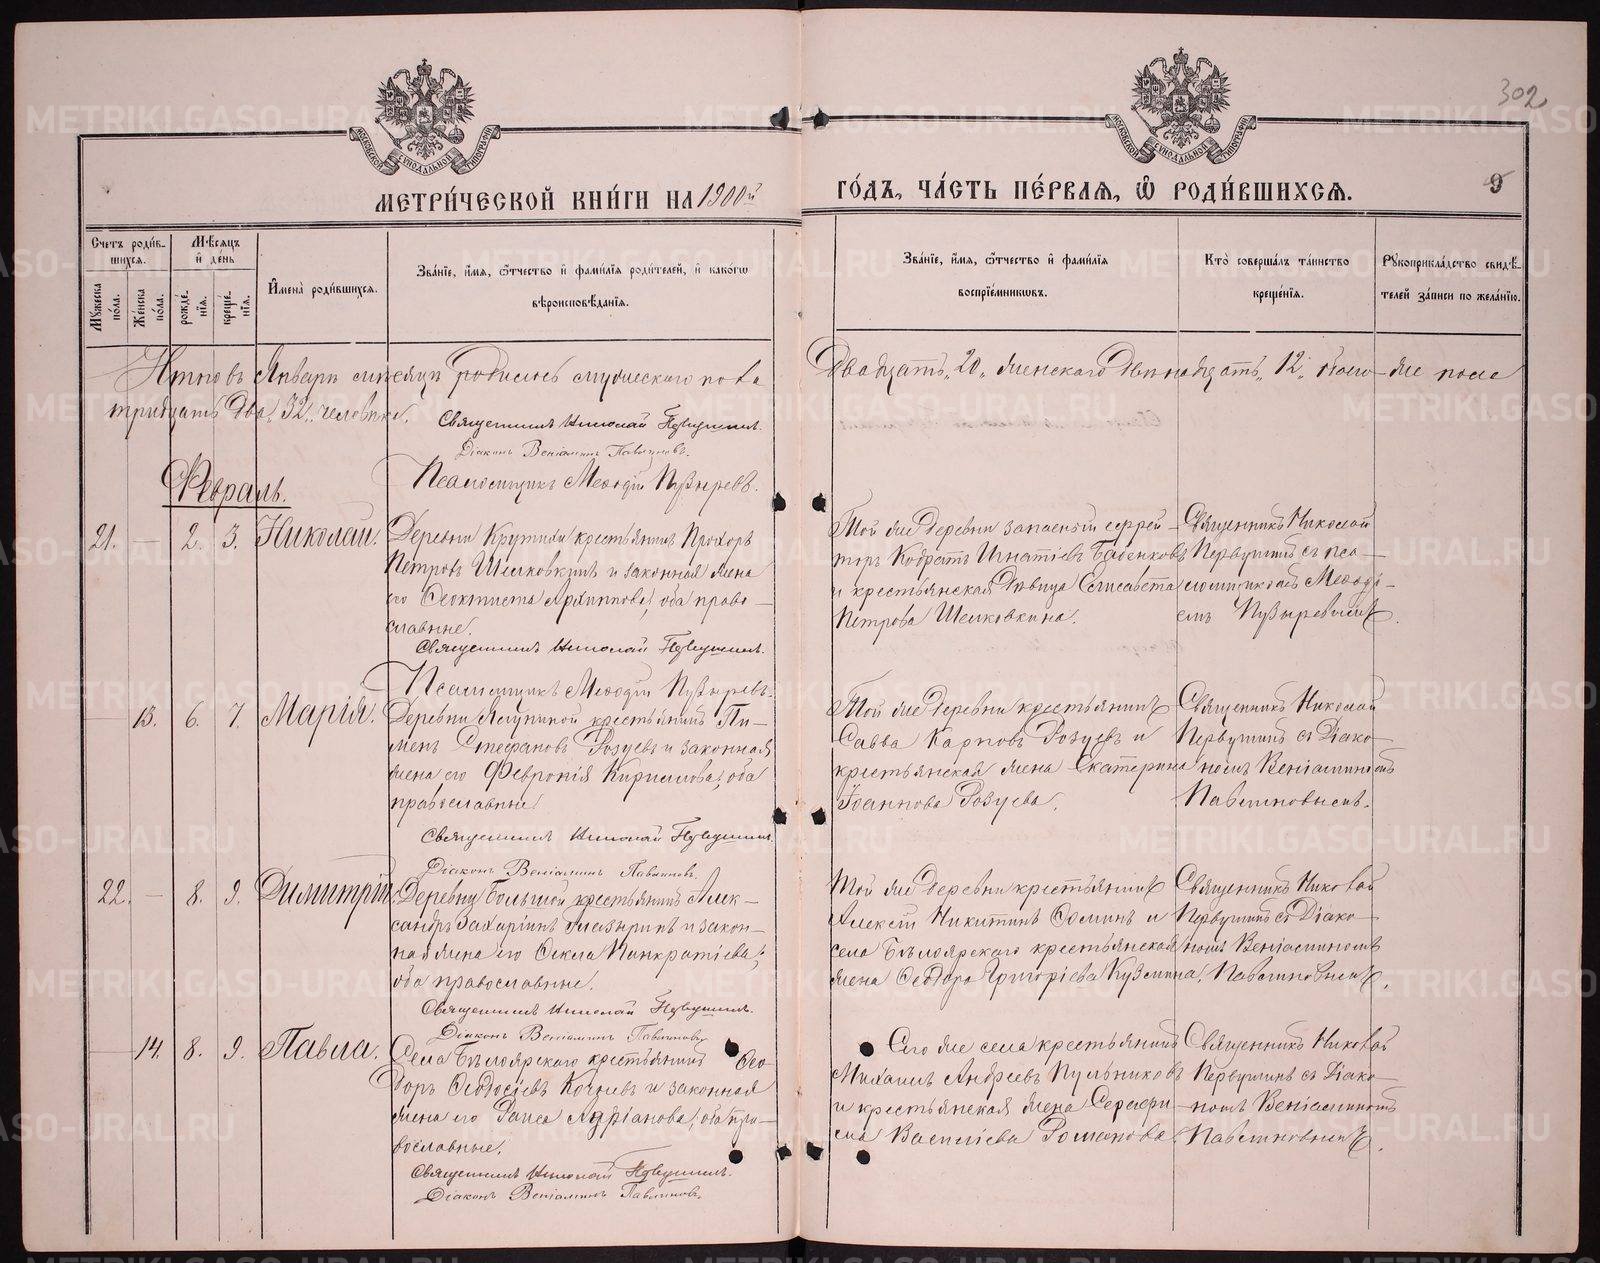 302
МОСКОВСКОЙ СѴНОДАЛЬНОЙ ТИПОГРАФІИ
МОСКОВСКОЙ СѴНОДАЛЬНОЙ ТИПОГРАФІИ
МЕТРИ́ЧЕСКОЙ КНИ́ГИ НА 1900й
ГО́ДЪ, ЧА́СТЬ ПЕ́РВАѦ, Ѽ РОДИ́ВШИХСѦ.
9
Счетъ роди́в-
шихсѧ.
Мужеска по́ла.
Же́нска по́ла.
Мѣ́сѧцъ и̂ де́нь
рожде́-
нїѧ.
креще́-
нїѧ.
И̂мена̀ роди́вшихсѧ.
Зва́нїе, и̂́мѧ, ѻ̂́тчество и̂ фами́лїѧ роди́телей, и̂ како́гѡ
вѣроисповѣ́данїѧ.
Зва́нїе, и̂́мѧ, ѻ̂́тчество и̂ фами́лїѧ
воспрїе́мникѡвъ.
Кто̀ соверша́лъ та́инство
креще́нїѧ.
Рꙋкоприкла́дство свидѣ́-
телей за́писи по жела́нїю.
Итого въ Январѣ мѣсяцѣ родилось мужескаго пола
Двадцать „20„ женскаго Двѣнадцать „12„ обоего же пола
тридцать два „32„ человѣка.
Священникъ Николай Первушинъ.
Діаконъ Веніаминъ Павлиновъ.
Псаломщикъ Меѳодій Пузыревъ.
Февраль.
21. — 2. 3. Николай.
Деревни Крутихи крестьянинъ Прохоръ
Петровъ Шелковкинъ и законная жена
его Ѳеоктиста Архиппова; оба право-
славные.
Священникъ Николай Первушинъ.
Псаломщикъ Меѳодій Пузыревъ.
Той же деревни запасный ефрей-
торъ Кодратъ Игнатіевъ Бабенковъ
и крестьянская дѣвица Елисавета
Петрова Шелковкина.
Священникъ Николай
Первушинъ съ пса-
ломщикомъ Меѳоді-
емъ Пузыревымъ.
— 13. 6. 7. Марія.
Деревни Ягуниной крестьянинъ Пи-
менъ Стефановъ Розуевъ и законная
жена его Февронія Кирилова; оба
православные.
Священникъ Николай Первушинъ.
Діаконъ Веніаминъ Павлиновъ.
Той же деревни крестьянинъ
Савва Карповъ Розуевъ и
крестьянская жена Екатерина
Іоаннова Розуева.
Священникъ Николай
Первушинъ съ Діако-
номъ Веніаминомъ
Павлиновымъ.
22. — 8. 9. Димитрій.
Деревни Большой крестьянинъ Алек-
сандръ Захаріинъ Глазыринъ и закон-
ная жена его Ѳекла Панкратіева;
оба православные.
Священникъ Николай Первушинъ.
Діаконъ Веніаминъ Павлиновъ.
Той же деревни крестьянинъ
Алексій Никитинъ Ѳоминъ и
села Бѣлоярскаго крестьянская
жена Ѳеодора Григоріева Кузмина.
Священникъ Николай
Первушинъ съ Діако-
номъ Веніаминомъ
Павлиновымъ.
— 14. 8. 9. Павла.
Села Бѣлоярскаго крестьянинъ Ѳео-
доръ Ѳеодосіевъ Кочневъ и законная
жена его Раиса Адріанова; оба пра-
вославные.
Священникъ Николай Первушинъ.
Діаконъ Веніаминъ Павлиновъ.
Сего же села крестьянинъ
Михаилъ Андреевъ Пульниковъ
и крестьянская жена Серафи-
ма Василіева Романова.
Священникъ Николай
Первушинъ съ Діако-
номъ Веніаминомъ
Павлиновымъ.
METRIKI.GASO-URAL.RU